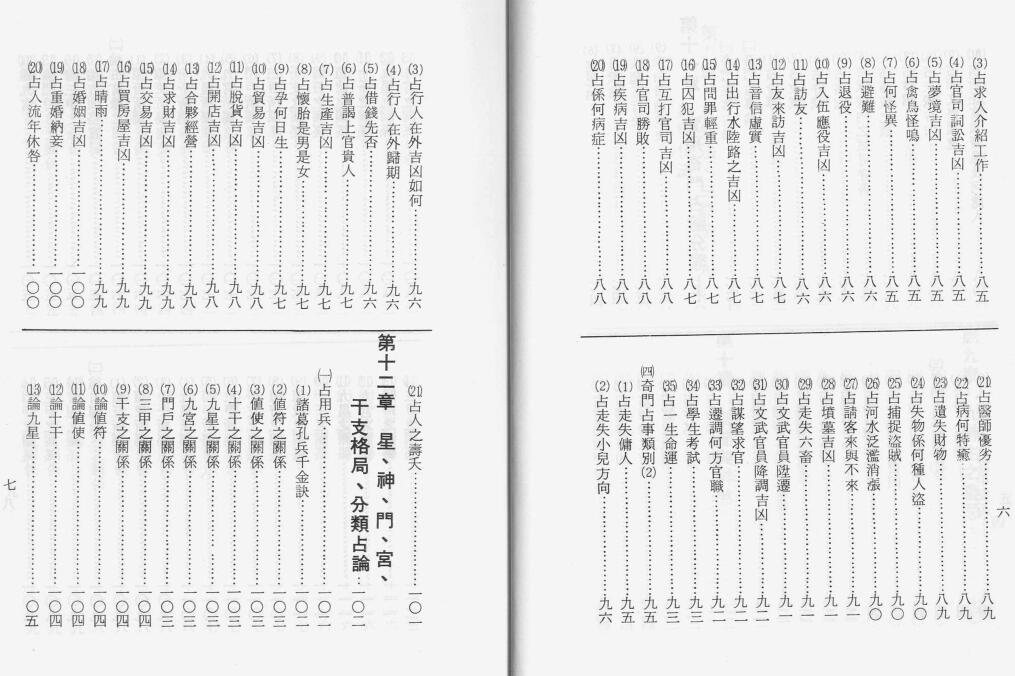 (3)占求人介紹工作……八五
(4)占官司詞訟吉凶……八五
(5)占夢境吉凶……八五
(6)占禽鳥怪鳴……八五
(7)占何怪異……八五
(8)占避難……八六
(9)占退役……八六
(10)占入伍應役吉凶……八六
(11)占訪友……八六
(12)占友來訪吉凶……八七
(13)占音信虛實……八七
(14)占出行水陸路之吉凶……八七
(15)占問罪輕重……八七
(16)占囚犯吉凶……八七
(17)占互打官司吉凶……八八
(18)占官司勝敗……八八
(19)占疾病吉凶……八八
(20)占係何病症……八八
(21)占醫師優劣……八九
(22)占病何時癒……八九
(23)占遺失財物……八九
(24)占失物係何種人盜……九〇
(25)占捕捉盜賊……九〇
(26)占河水泛濫消漲……九〇
(27)占請客來與不來……九一
(28)占墳墓吉凶……九一
(29)占走失六畜……九一
(30)占文武官員陞遷……九一
(31)占文武官員降調吉凶……九二
(32)占謀望求官……九二
(33)占遷調何方官職……九二
(34)占學生考試……九三
(35)占一生命運……九三
(四)奇門占事類別(2)……九五
(1)占走失傭人……九五
(2)占走失小兒方向……九六
六
(3)占行人在外吉凶如何……九六
(4)占行人在外歸期……九六
(5)占借錢先否……九六
(6)占普謁上官貴人……九七
(7)占生產吉凶……九七
(8)占懷胎是男是女……九七
(9)占孕何日生……九七
(10)占貿易吉凶……九八
(11)占脫貨吉凶……九八
(12)占開店吉凶……九八
(13)占合夥經營……九八
(14)占求財吉凶……九九
(15)占交易吉凶……九九
(16)占買房屋吉凶……九九
(17)占晴雨……九九
(18)占婚姻吉凶……一〇〇
(19)占重婚納妾……一〇〇
(20)占人流年休咎……一〇〇
(21)占人之壽夭……一〇一
第十二章 星、神、門、宮、
干支格局、分類占論……一〇二
(一)占用兵……一〇二
(1)諸葛孔兵千金訣……一〇二
(2)值符之關係……一〇三
(3)值使之關係……一〇三
(4)十干之關係……一〇三
(5)九星之關係……一〇三
(6)九宮之關係……一〇三
(7)門戶之關係……一〇三
(8)三甲之關係……一〇四
(9)干支之關係……一〇四
(10)論值符……一〇四
(11)論值使……一〇四
(12)論十干……一〇四
(13)論九星……一〇五
七